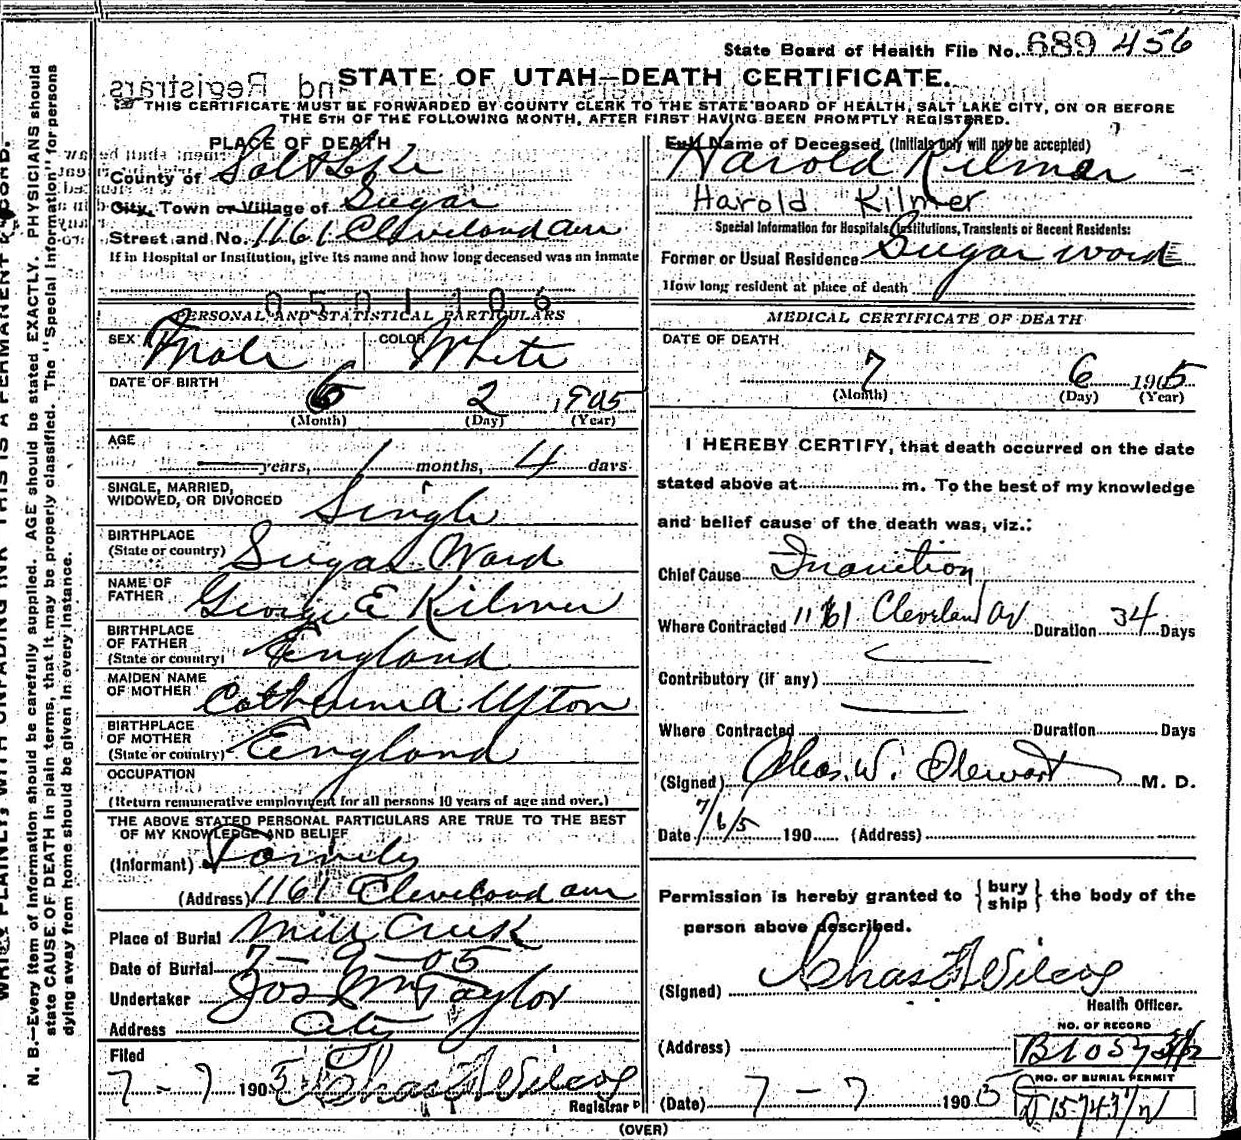 State Board of Health File No. 689 456
STATE OF UTAH—DEATH CERTIFICATE.
and Registrars
THIS CERTIFICATE MUST BE FORWARDED BY COUNTY CLERK TO THE STATE BOARD OF HEALTH, SALT LAKE CITY, ON OR BEFORE
THE 5TH OF THE FOLLOWING MONTH, AFTER FIRST HAVING BEEN PROMPTLY REGISTERED.
PLACE OF DEATH
County of Salt Lake
City, Town or Village of Sugar
Street and No. 1161 Cleveland ave
If in Hospital or Institution, give its name and how long deceased was an inmate
0501106
PERSONAL AND STATISTICAL PARTICULARS
SEX Male COLOR White
DATE OF BIRTH
6 2 1905
(Month) (Day) (Year)
AGE
— years, 1 months, 4 days
SINGLE, MARRIED,
WIDOWED, OR DIVORCED Single
BIRTHPLACE
(State or country) Sugar Ward
NAME OF
FATHER George E Kilmer
BIRTHPLACE
OF FATHER
(State or country) England
MAIDEN NAME
OF MOTHER Catherine A Upton
BIRTHPLACE
OF MOTHER
(State or country) England
OCCUPATION
(Return remunerative employment for all persons 10 years of age and over.)
THE ABOVE STATED PERSONAL PARTICULARS ARE TRUE TO THE BEST
OF MY KNOWLEDGE AND BELIEF
(Informant) Family
(Address) 1161 Cleveland ave
Place of Burial Mill Creek
Date of Burial 7-9-05
Undertaker Jos Wm Taylor
Address City
Filed
7-7 1905 Chas Wilcox
Registrar
Full Name of Deceased (Initials only will not be accepted)
Harold Kilmer
Harold Kilmer
Special Information for Hospitals, Institutions, Transients or Recent Residents:
Former or Usual Residence Sugar ward
How long resident at place of death
MEDICAL CERTIFICATE OF DEATH
DATE OF DEATH
7 6 1905
(Month) (Day) (Year)
I HEREBY CERTIFY, that death occurred on the date
stated above at m. To the best of my knowledge
and belief cause of the death was, viz.:
Chief Cause Inanition
Where Contracted 1161 Cleveland Av Duration 34 Days
Contributory (if any)
Where Contracted Duration Days
(Signed) Chas. W. Stewart M. D.
Date 7/6/5 190 (Address)
Permission is hereby granted to { bury
ship } the body of the
person above described.
(Signed) Chas Wilcox
Health Officer.
(Address)
NO. OF RECORD
B1057
(Date) 7-7 1905
NO. OF BURIAL PERMIT
(OVER)
WRITE PLAINLY, WITH UNFADING INK THIS IS A PERMANENT RECORD.
N. B.—Every item of information should be carefully supplied. AGE should be stated EXACTLY. PHYSICIANS should
state CAUSE OF DEATH in plain terms, that it may be properly classified. The "Special Information" for persons
dying away from home should be given in every instance.